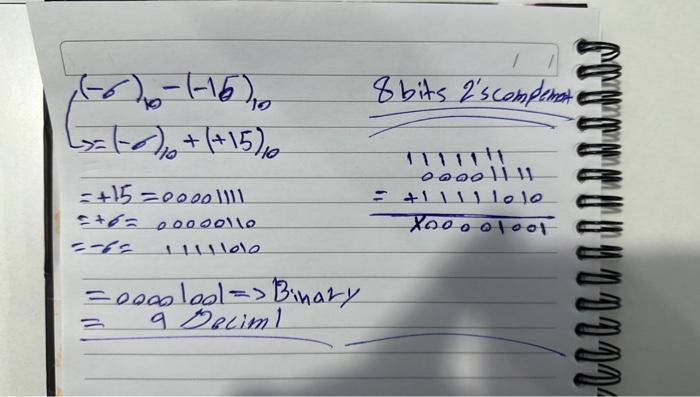 (-6)10 - (-15)10
8 bits 2's complement
=> = (-6)10 + (+15)10
1111111
00001111
= +11111010
X00001001
= +15 = 00001111
= +6 = 00000110
= -6 = 11111010
= 00001001 => Binary
= 9 Deciml